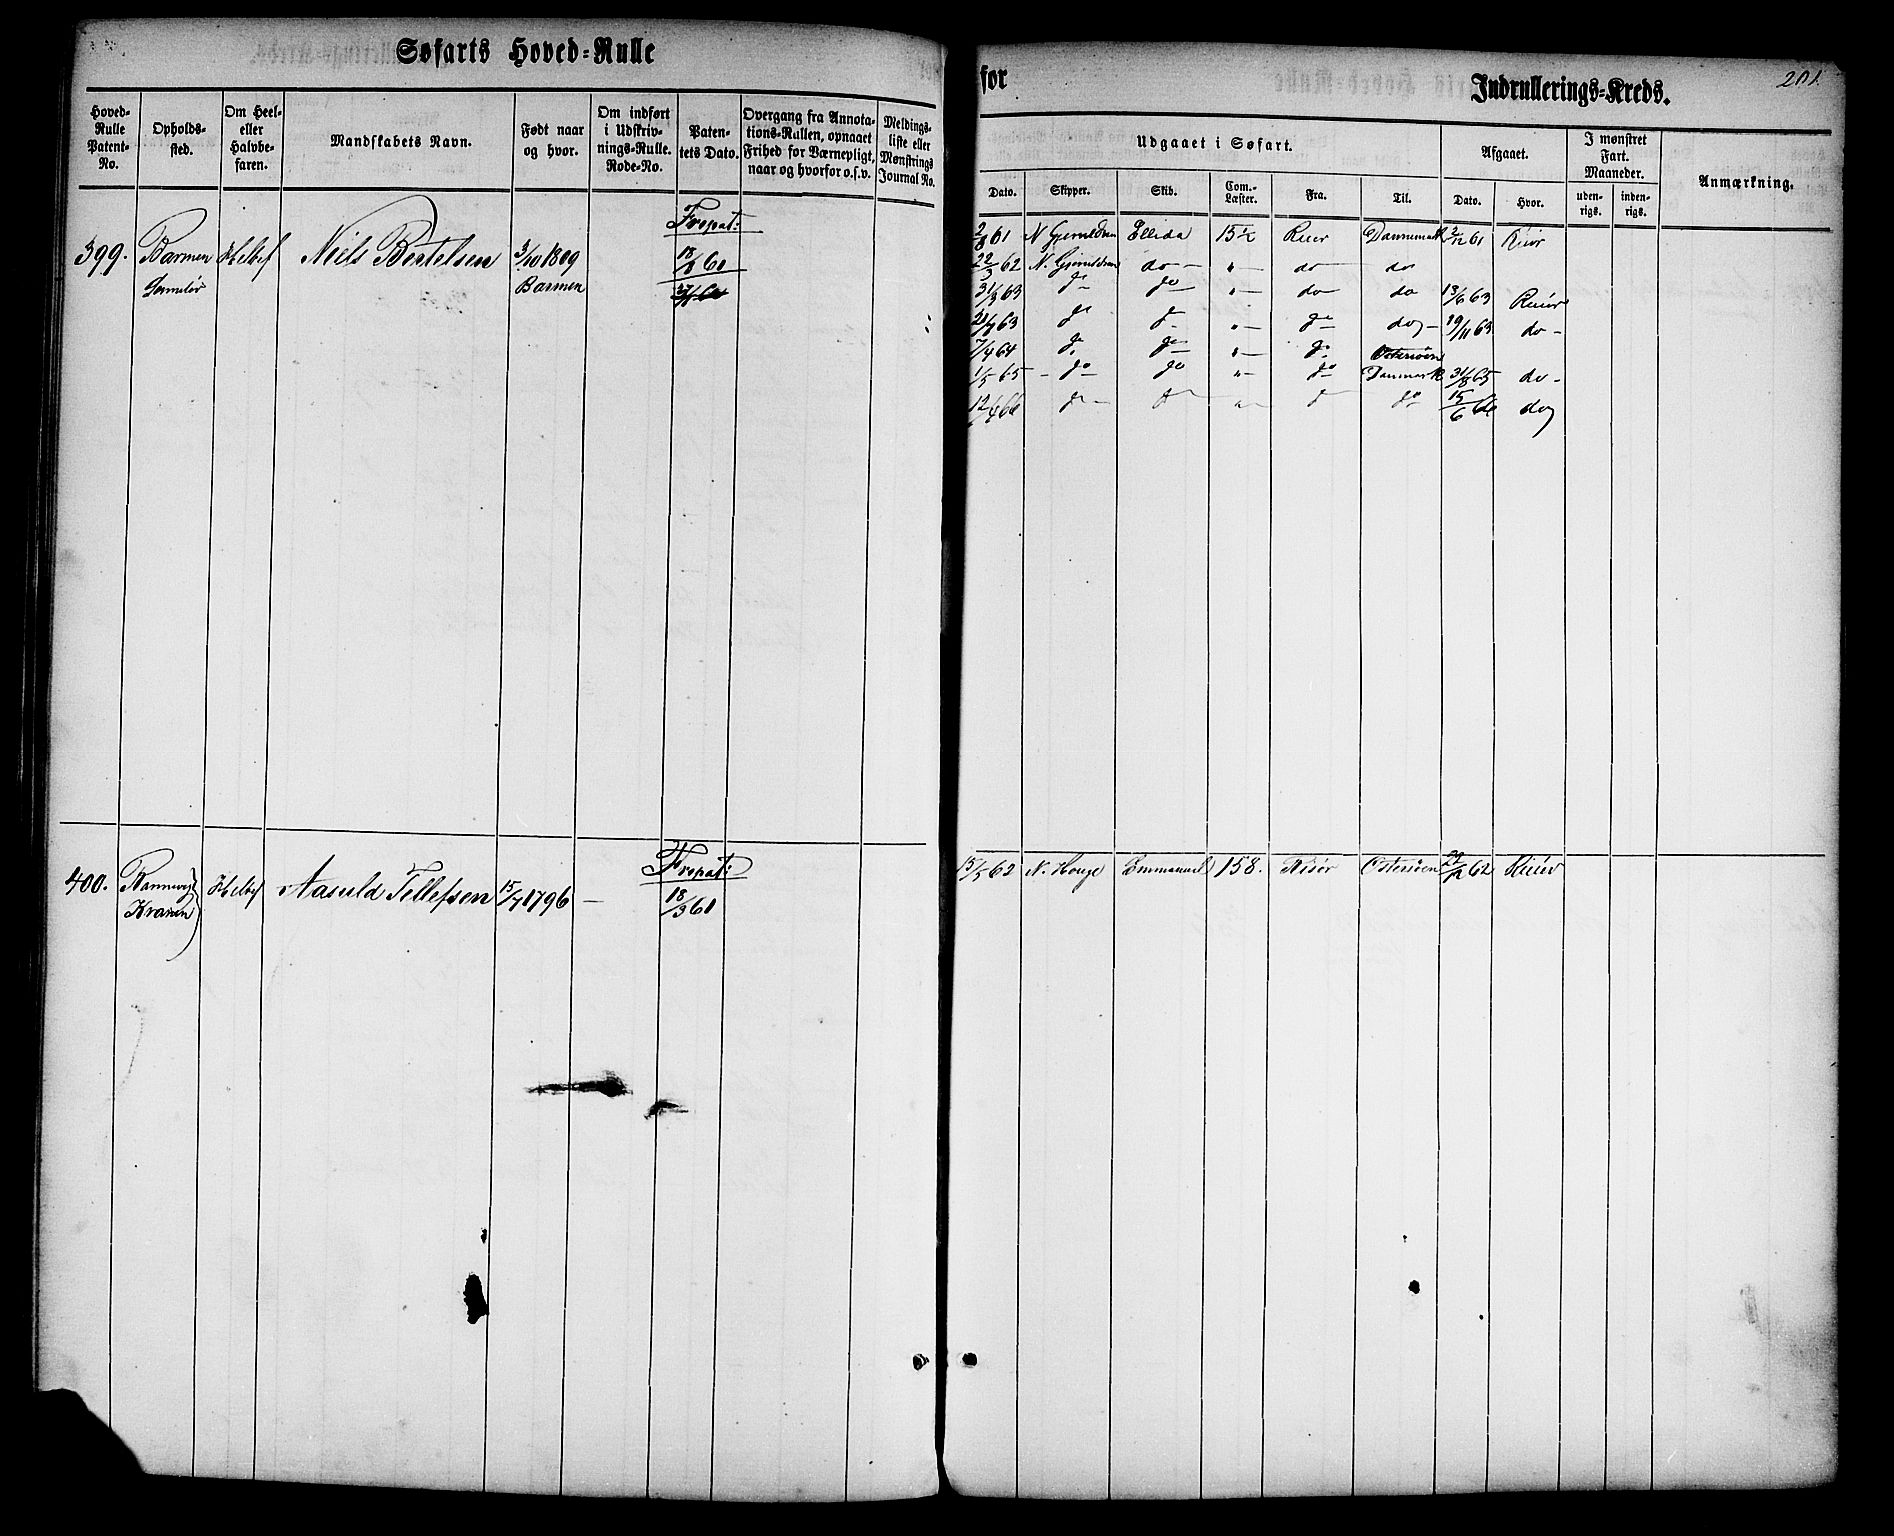 Søfarts Hoved=Rulle
for
Indrullerings=Kreds.
201.
Hoved-Rulle Patent-No.
Opholds-sted.
Om Heel- eller Halvbe-faren.
Mandskabets Navn.
Født naar og hvor.
Om indført i Udskriv-nings-Rulle. Rode-No.
Paten-tets Dato.
Overgang fra Annota-tions-Rullen, opnaaet Frihed for Værnepligt, naar og hvorfor o.s.v.
Meldings-liste eller Mønstrings Journal No.
Udgaaet i Søfart.
Afgaaet.
I mønstret Fart. Maaneder.
Anmærkning.
Dato. Skipper. Skib. Com.-Læster. Fra. Til. Dato. Hvor. uden-rigs. inden-rigs.
Fropat:
399. Barmen Helbef Niels Bertelsen 3/10 1809
Barmen
61 Ellida 15 1/2 Danmark 61
22/3 62 do do do
31/3 63 do do do do 13/6 63
63 do do do do 19/11 63 do
7/4 64 do do do Østersøen
1/5 65 do do do Danmark 31/8 65 do
12/4 66 do do do 15/6 66 do
Fropat:
400. Helbef Aasuld Tellefsen 15/7 1796 — 18/3 61
Kranen
15/5 62 N. Houge Emmanuel 158. Risør Østersøen 62 Risør